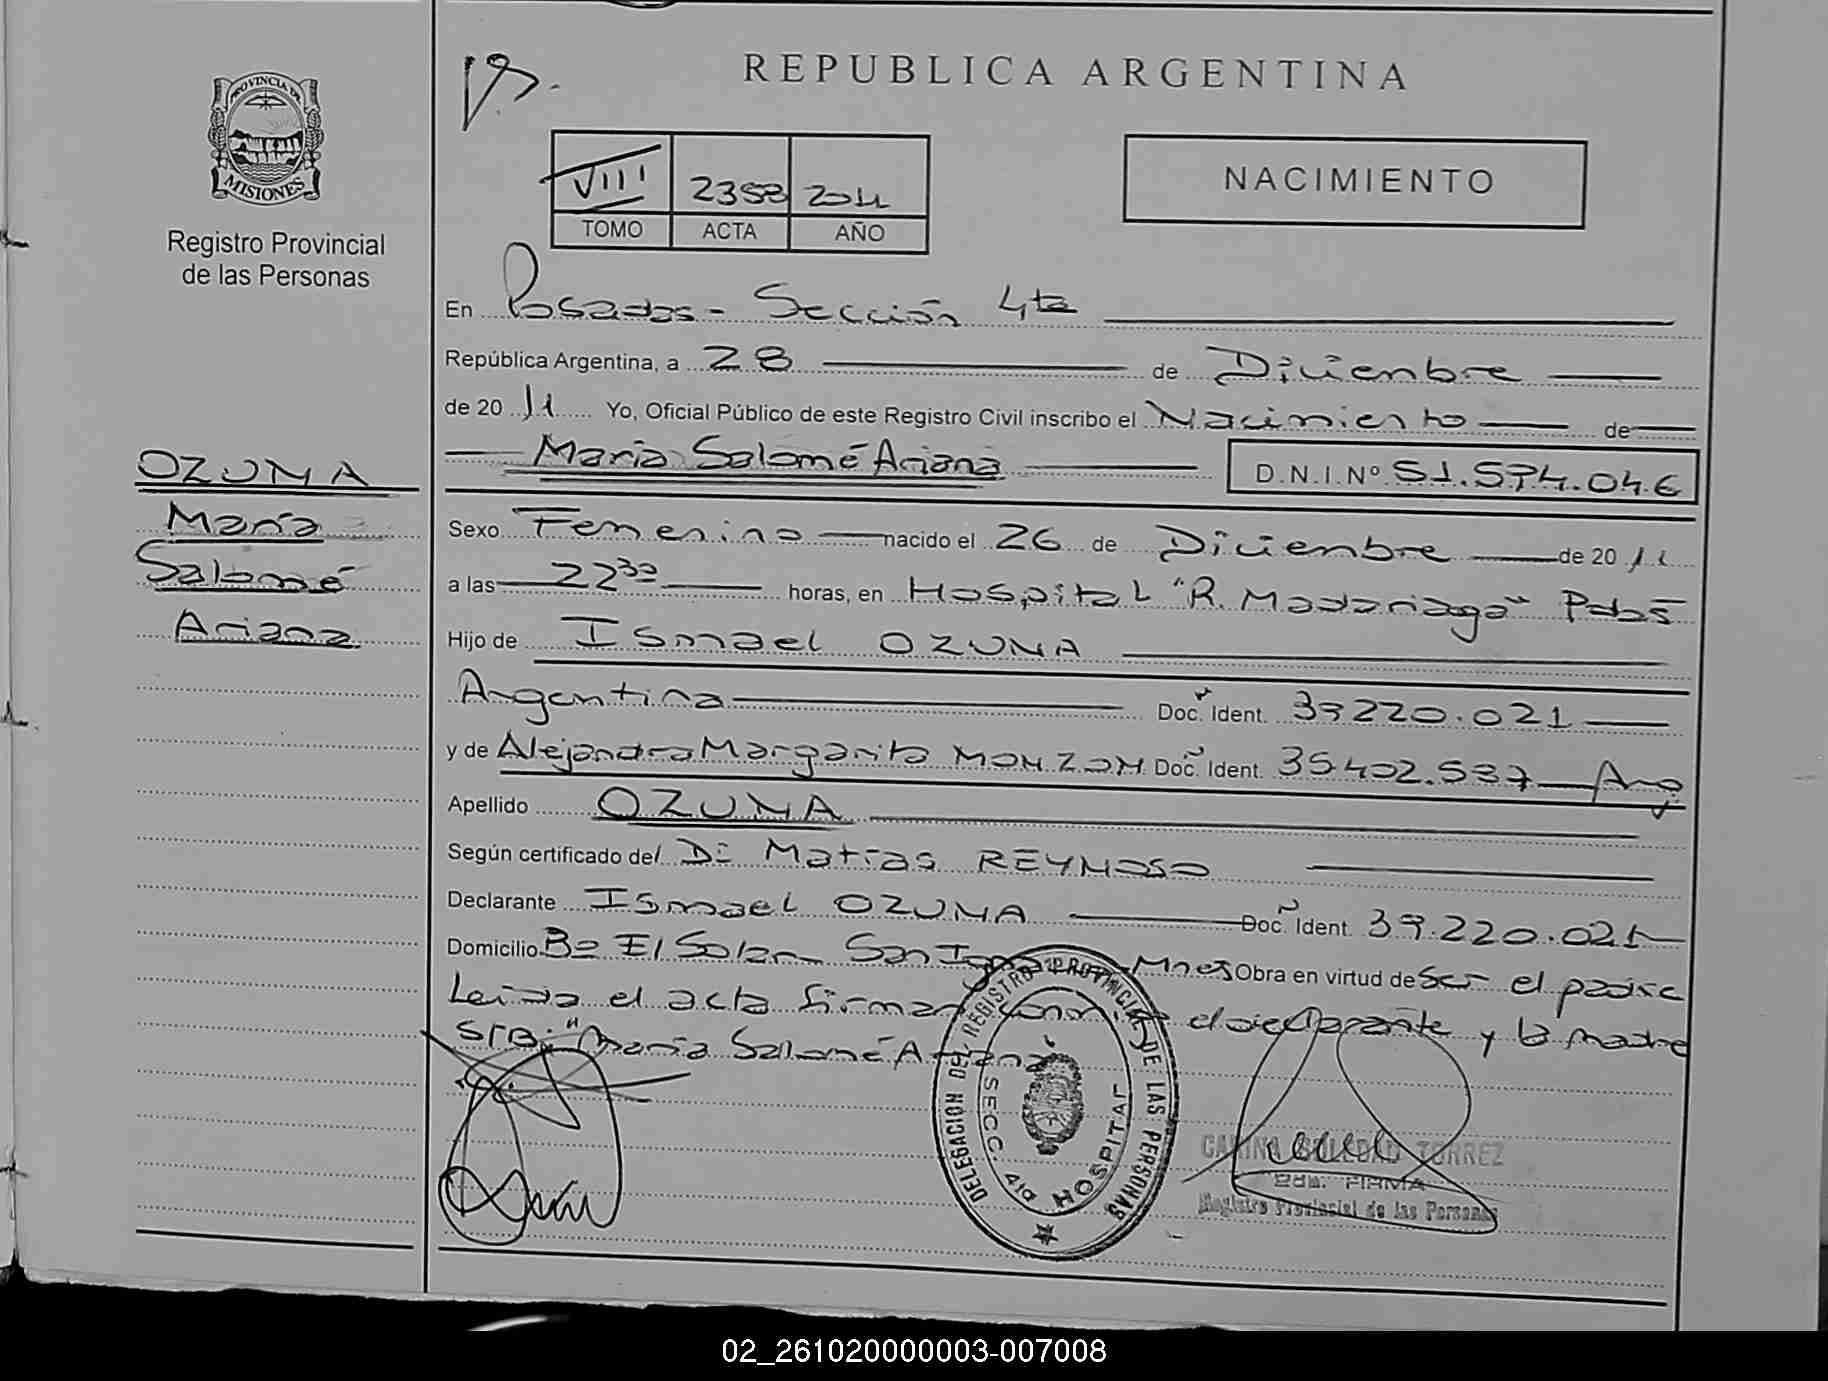 REPUBLICA ARGENTINA
PROVINCIA DE
MISIONES
Registro Provincial
de las Personas
VIII 2358 2011
TOMO ACTA AÑO
NACIMIENTO
En Posadas - Sección 4ta
República Argentina, a 28 de Diciembre
de 2011 Yo, Oficial Público de este Registro Civil inscribo el Nacimiento de
María Salomé Ariana D.N.I.Nº 51.574.046
OZUNA
María
Salomé
Ariana
Sexo Femenino nacido el 26 de Diciembre de 2011
a las 22³⁰ horas, en Hospital "R. Madariaga" Pdas
Hijo de Ismael OZUNA
Argentina Doc. Ident. 39220.021
y de Alejandra Margarita MONZON Doc. Ident. 35402.537 Arg
Apellido OZUNA
Según certificado del Dr Matías REYNOSO
Declarante Ismael OZUNA Doc. Ident. 39.220.021
Domicilio Bº El Solar San Mnes Obra en virtud de ser el padre
Leída el acta firman el declarante y la madre
S/R: "María Salomé Ariana"
DELEGACION DEL REGISTRO PROVINCIAL DE LAS PERSONAS
SECC. 4ta HOSPITAL
CARINA SOLEDAD TORREZ
FIRMA
Registro Provincial de las Personas
02_261020000003-007008